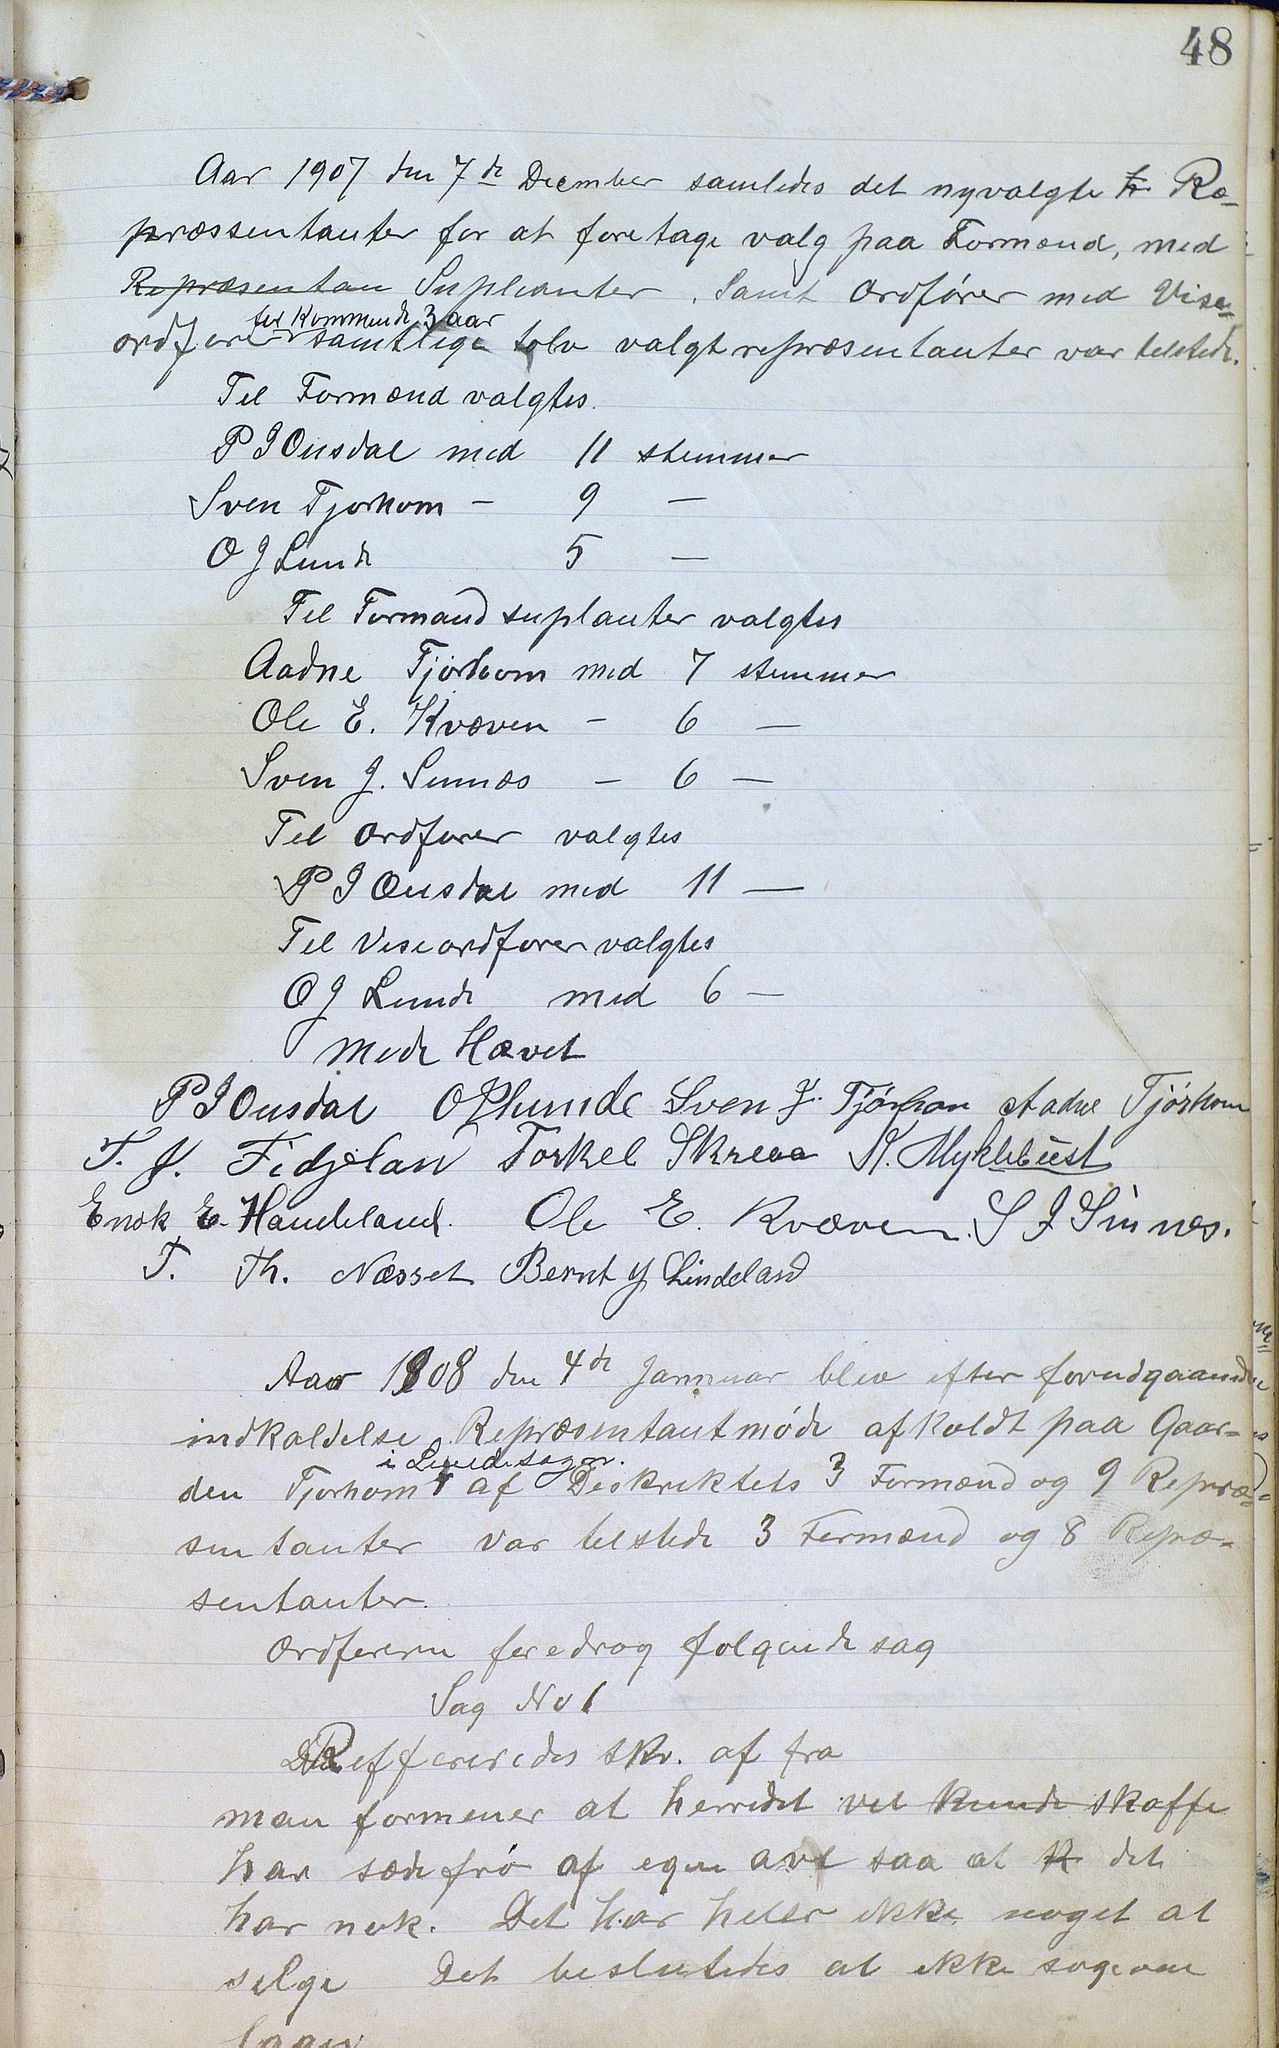 48
Aar 1907 den 7de December samledes det nyvalgte fr Re-
præssentanter for at foretage valg paa Formænd, med
Repræsentan Suplanter. Samt Ordfører med Vise-
for Kommende 3 aar
ordfører samtlige tolv valgt repræsentanter var telstede.
Tel Formænd valgtes.
P J Ousdal med 11 stemmer
Sven Tjorhom - 9 -
O J Lunde 5 -
Tel Formand suplanter valgtes
Aadne Tjørhom med 7 stemmer
Ole E. Kvæven - 6 -
Sven J. Sinnæs - 6 -
Tel Ordfører valgtes
P J Ousdal med 11 -
Tel Viseordfører valgtes
O J Lunde med 6 -
Møde Hævet
P J Ousdal O J Lunde Sven J. Tjørhom Aadne Tjørhom
T. J. Fidjelan Torkel Skreaa K. Myklebust
Enok E. Haudeland. Ole E. Kvæven. S J Sinnes.
T. Th. Næsset Bernt J Lindeland
Aar 1908 den 4de Januar blev efter forudgaaende
indkaldelse Repræsentantmøde afholdt paa Gaar-
i Lunde sogn.
den Tjorhom af Destriktets 3 Formænd og 9 Repræ-
sentanter var telstede 3 Formænd og 8 Repræ-
sentanter.
Ordføreren foredrog følgende sag
Sag No 1
Reffereredes skr. af fra
man formener at herredet vel kunde skaffe
har sædefrø af egen avl saa at K det
har nok. Det har heler ikke noget at
selge Det besluttedes at ikke søge om
laan